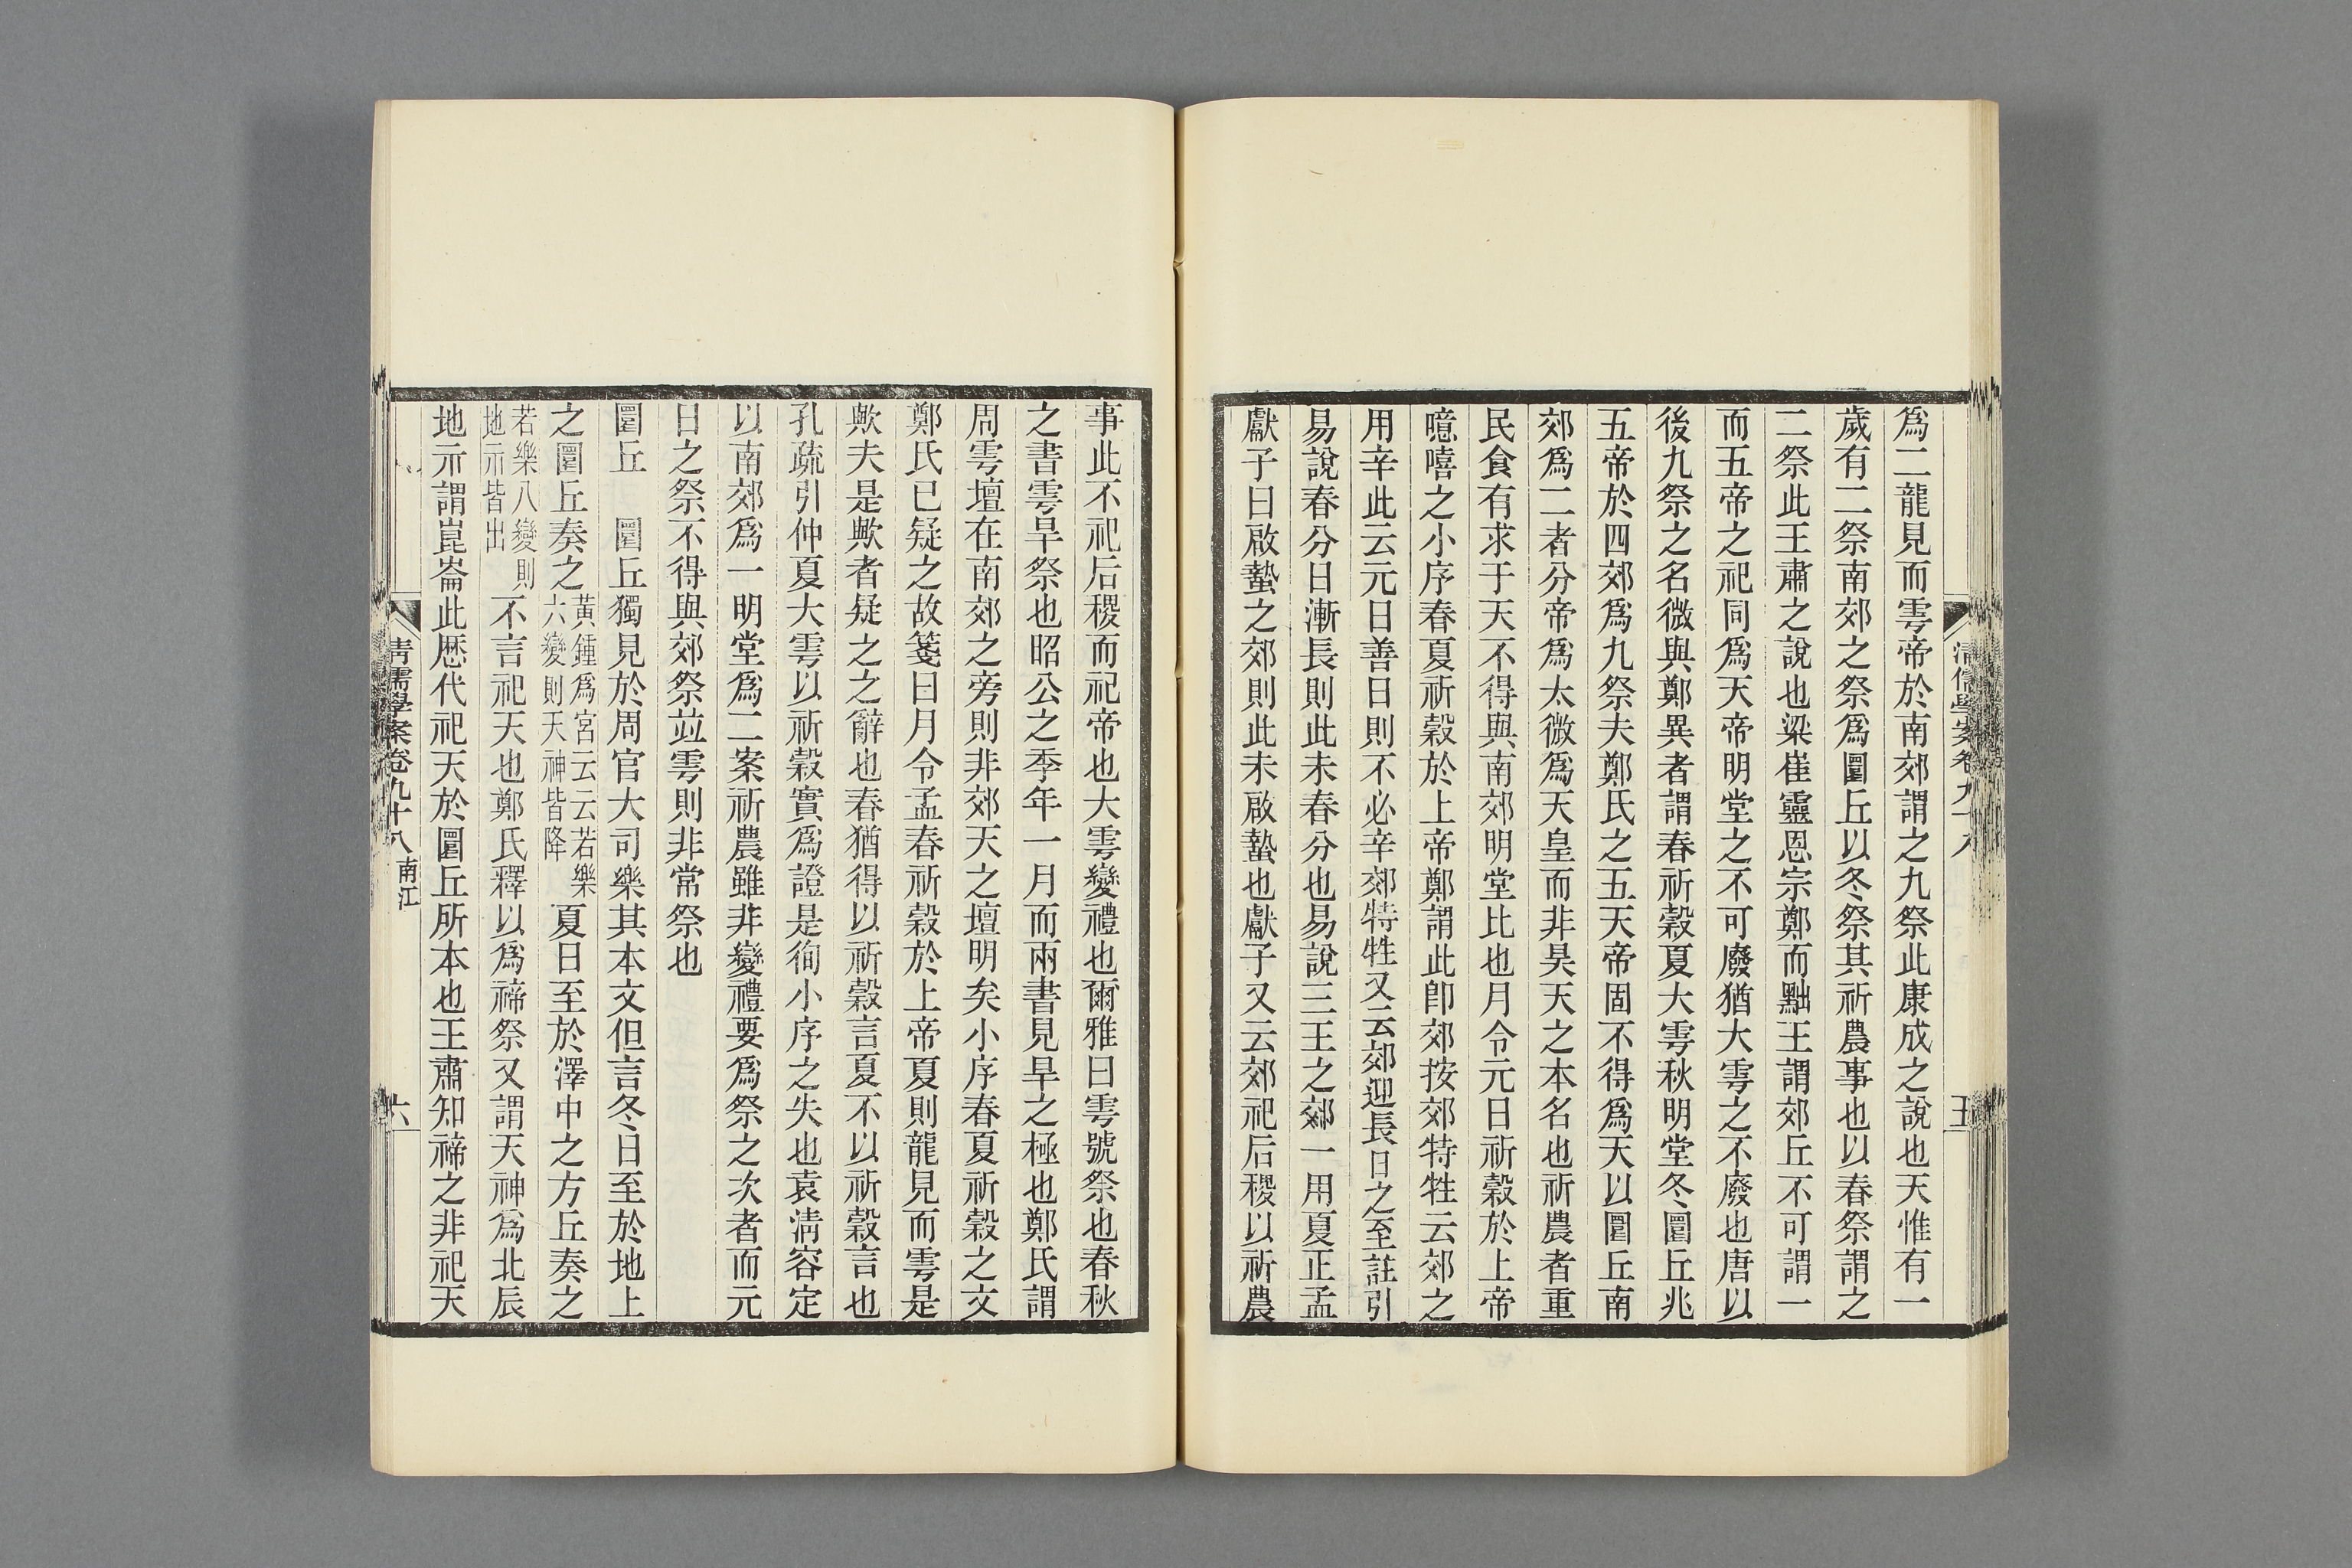 清儒學案卷九十八
五
爲二龍見而雩帝於南郊謂之九祭此康成之說也天惟有一
歲有二祭南郊之祭爲圜丘以冬祭其祈農事也以春祭謂之
二祭此王肅之說也梁崔靈恩宗鄭而黜王謂郊丘不可謂一
而五帝之祀同爲天帝明堂之不可廢猶大雩之不廢也唐以
後九祭之名微與鄭異者謂春祈穀夏大雩秋明堂冬圜丘兆
五帝於四郊爲九祭夫鄭氏之五天帝固不得爲天以圜丘南
郊爲二者分帝爲太微爲天皇而非昊天之本名也祈農者重
民食有求于天不得與南郊明堂比也月令元日祈穀於上帝
噫嘻之小序春夏祈穀於上帝鄭謂此卽郊按郊特牲云郊之
用辛此云元日善日則不必辛郊特牲又云郊迎長日之至註引
易說春分日漸長則此未春分也易說三王之郊一用夏正孟
獻子曰啟蟄之郊則此未啟蟄也獻子又云郊祀后稷以祈農
事此不祀后稷而祀帝也大雩變禮也爾雅曰雩號祭也春秋
之書雩旱祭也昭公之季年一月而兩書見旱之極也鄭氏謂
周雩壇在南郊之旁則非郊天之壇明矣小序春夏祈穀之文
鄭氏已疑之故箋曰月令孟春祈穀於上帝夏則龍見而雩是
歟夫是歟者疑之之辭也春猶得以祈穀言夏不以祈穀言也
孔疏引仲夏大雩以祈穀實爲證是徇小序之失也袁清容定
以南郊爲一明堂爲二案祈農雖非變禮要爲祭之次者而元
日之祭不得與郊祭竝雩則非常祭也
圜丘　圜丘獨見於周官大司樂其本文但言冬日至於地上
之圜丘奏之黃鍾爲宮云云若樂六變則天神皆降夏日至於澤中之方丘奏之
若樂八變則地示皆出不言祀天也鄭氏釋以爲禘祭又謂天神爲北辰
地示謂崑崙此歷代祀天於圜丘所本也王肅知禘之非祀天
清儒學案卷九十八 南江
六